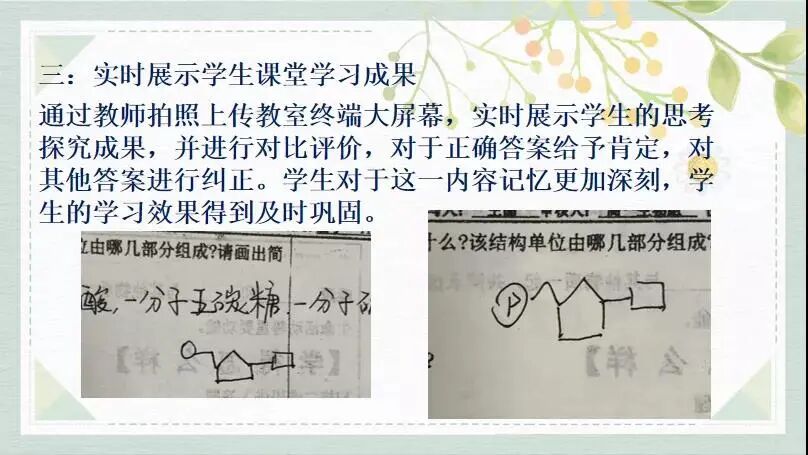 三：实时展示学生课堂学习成果
通过教师拍照上传教室终端大屏幕，实时展示学生的思考
探究成果，并进行对比评价，对于正确答案给予肯定，对
其他答案进行纠正。学生对于这一内容记忆更加深刻，学
生的学习效果得到及时巩固。
位由哪几部分组成?请画出简
酸，一分子五碳糖，一分子
什么?该结构单位由哪几部分组成?
P